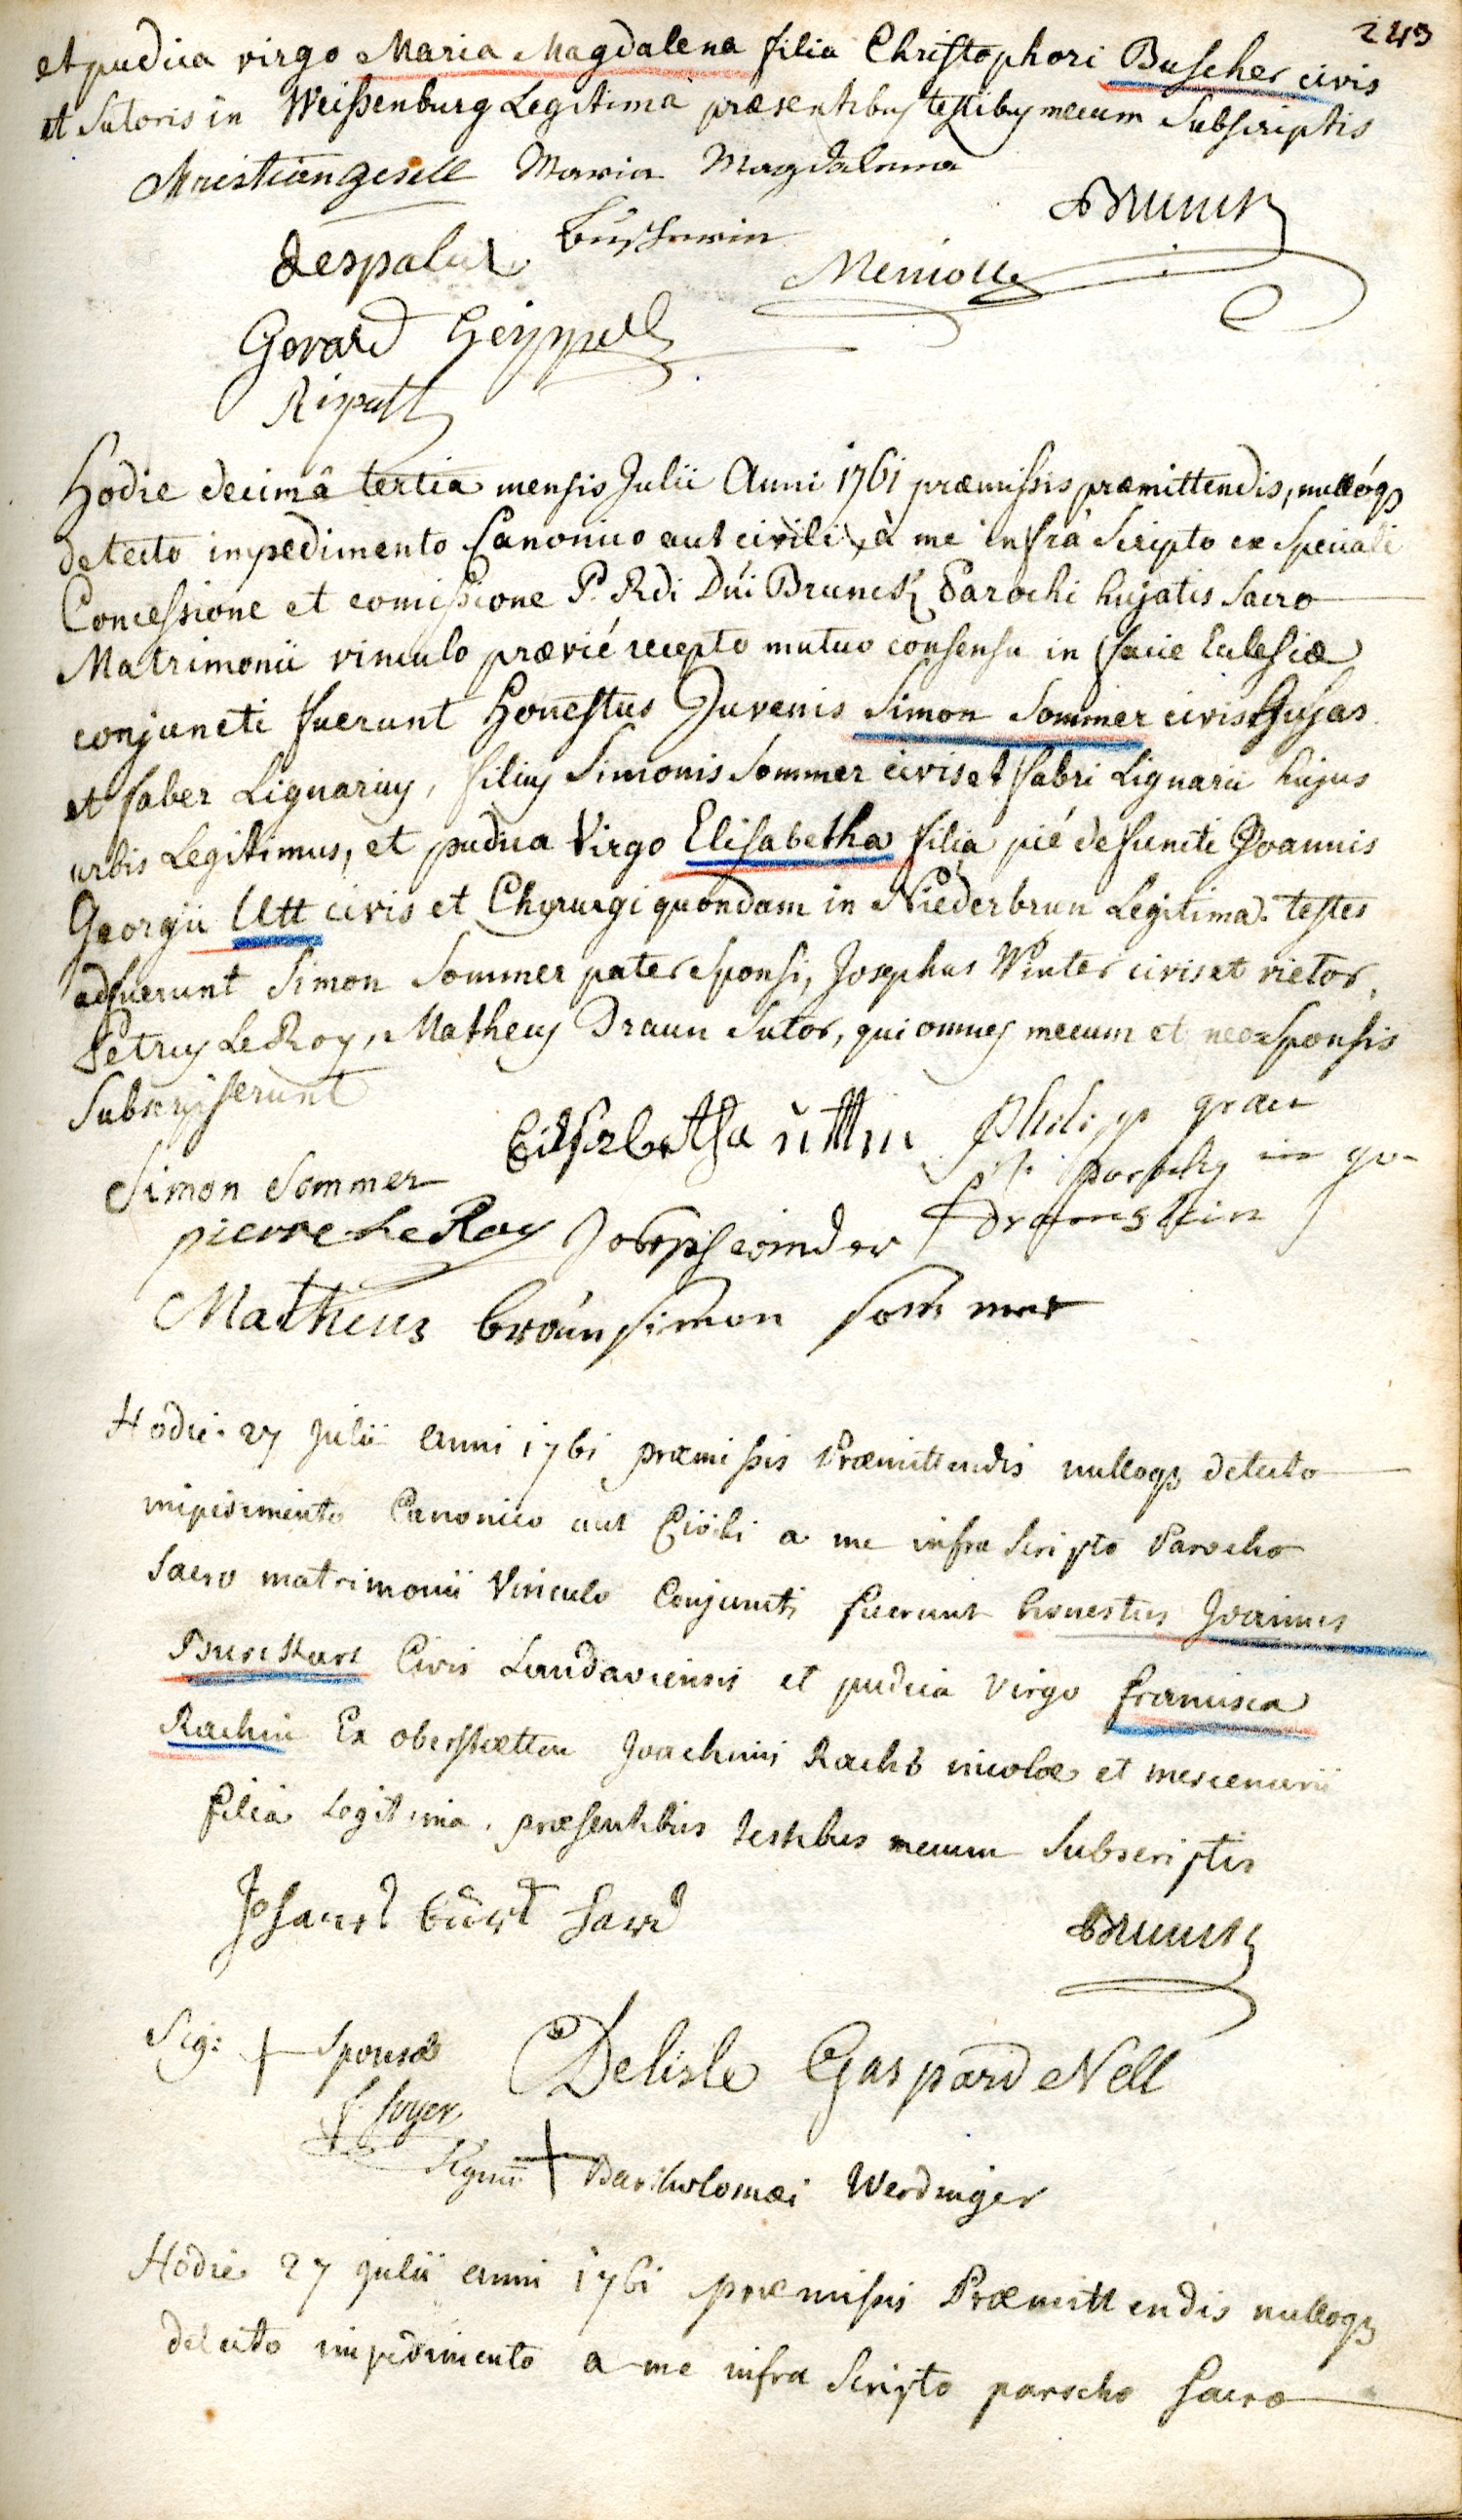 243
et pudica virgo Maria Magdalena filia Christophori Buscher civis
et Sutoris in Weissenburg Legitima præsentibus testibus mecum Subscriptis
Christian gesell Maria Magdalena
Buscherin
Brunck
despalut
Meniolle
Gerard Geippell
Rispatt
Hodie decimâ tertia mensis Julii Anni 1761 præmissis præmittendis, nullóq3
detecto impedimento Canonico aut civili, à me infrà Scripto ex Speciali
Concessione et comissione P. Rdi Dni Brunck Parochi hujatis Sacro
Matrimonii vinculo prævié recepto mutuo consensu in facie Eclesiæ
conjuncti fuerunt Honestus Juvenis Simon Sommer civis Hujas
et faber Lignarius, filius Simonis Sommer civis et fabri Lignarii hujus
urbis Legitimus, et pudica Virgo Elisabetha filia pié defuncti Joannis
Georgii Utt civis et Chyrurgi quondam in Niederbrun Legitima. testes
adfuerunt Simon Sommer pater sponsi, Josephus Winter civis et vietor,
Petrus LeRoy, Matheus Braun Sutor, qui omnes mecum et neo-Sponsis
Subscripserunt
Elisabetha üttin
Philipp grau
p.t. parochus in go-
dramstein
Simon Sommer
pierre LeRoy Joseph winder
Matheus braun simon sommer
Hodie 27 Julii Anni 1761 præmissis Præmittendis nulloq3 detecto
impedimento Canonico aut Civili a me infra Scripto Parocho
Sacro matrimonii Vinculo Conjuncti fuerunt honestus Joannes
Burckart Civis Landaviensis et pudica Virgo francisca
Rachin Ex oberstætten Joachimi Rach incolæ et mercenarii
filia Legitima. præsentibus testibus mecum Subscriptis
Johannes burk hard
Brunck
Sig: + Sponsæ Delisle Gaspard Nell
f. soyer
Signum + Bartholomæi Werdinger
Hodie 27 julii anni 1761 præmissis Præmittendis nulloq3
detecto impedimento a me infra Scripto parocho Sacro